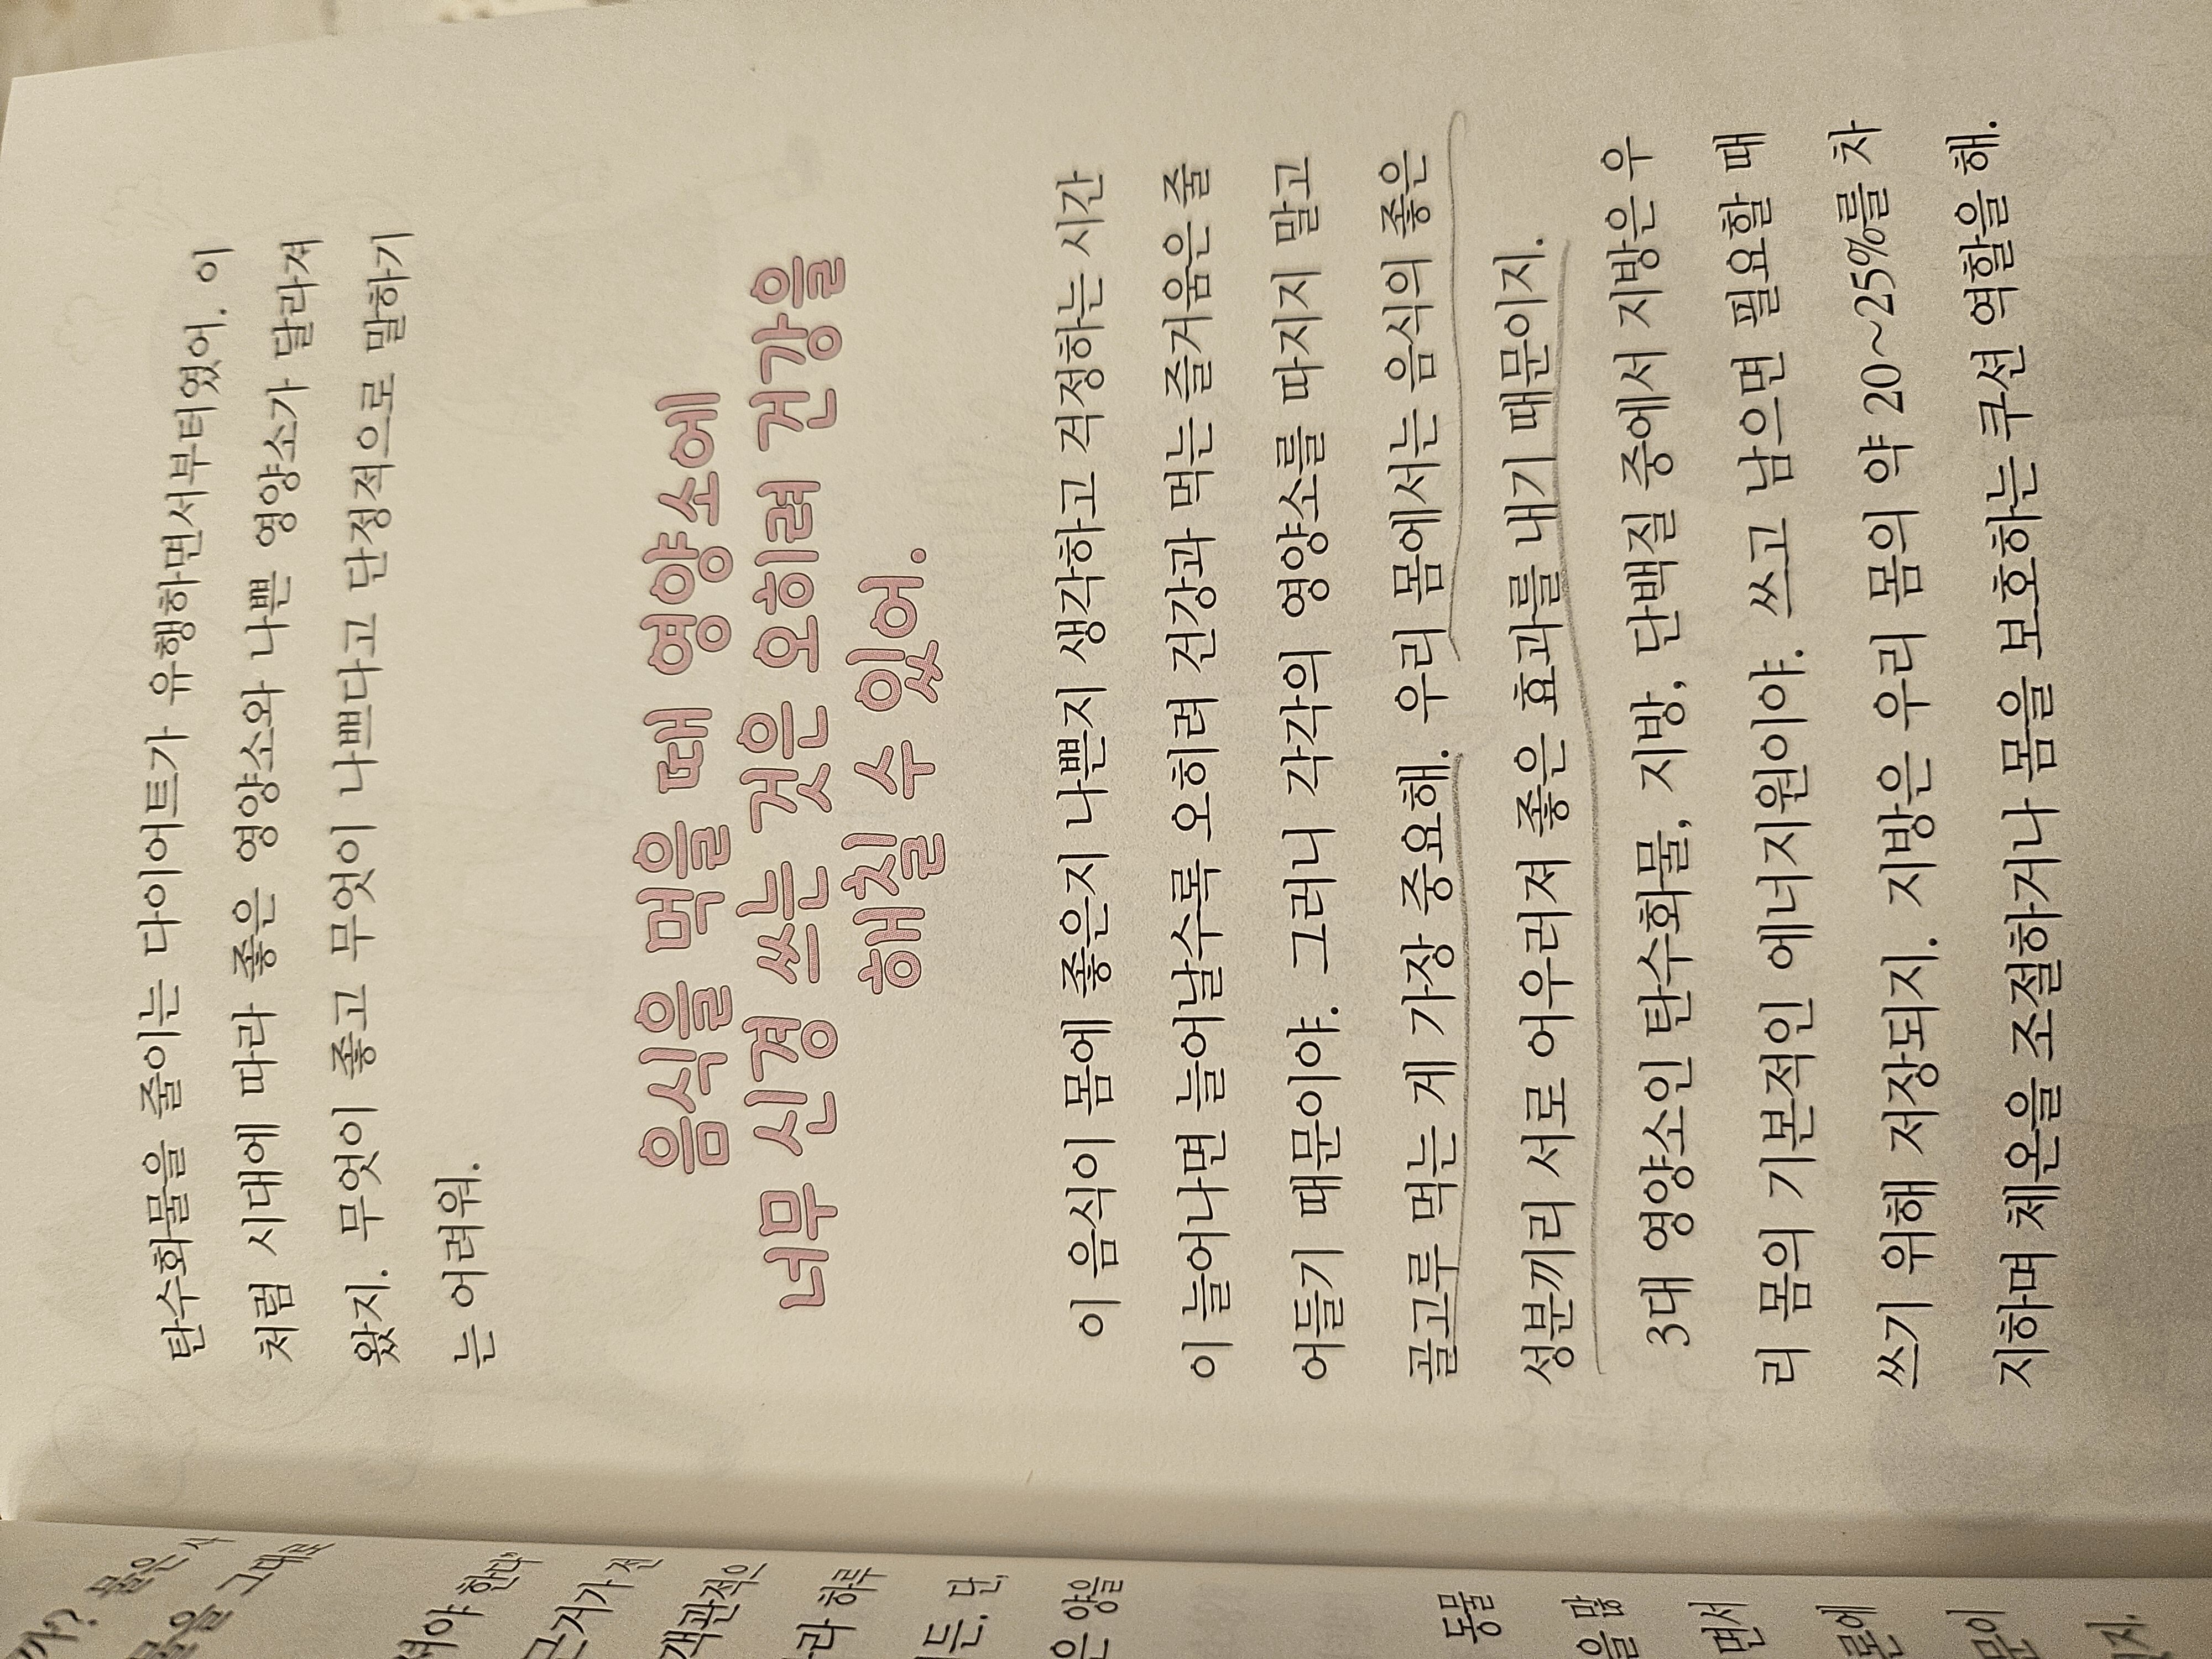 탄수화물을 줄이는 다이어트가 유행하면서부터였어. 이
처럼 시대에 따라 좋은 영양소와 나쁜 영양소가 달라져
왔지. 무엇이 좋고 무엇이 나쁘다고 단정적으로 말하기
는 어려워.
음식을 먹을 때 영양소에
너무 신경 쓰는 것은 오히려 건강을
해칠 수 있어.
이 음식이 몸에 좋은지 나쁜지 생각하고 걱정하는 시간
이 늘어나면 늘어날수록 오히려 건강과 먹는 즐거움은 줄
어들기 때문이야. 그러니 각각의 영양소를 따지지 말고
골고루 먹는 게 가장 중요해. 우리 몸에서는 음식의 좋은
성분끼리 서로 어우러져 좋은 효과를 내기 때문이지.
3대 영양소인 탄수화물, 지방, 단백질 중에서 지방은 우
리 몸의 기본적인 에너지원이야. 쓰고 남으면 필요할 때
쓰기 위해 저장되지. 지방은 우리 몸의 약 20~25%를 차
지하며 체온을 조절하거나 몸을 보호하는 쿠션 역할을 해.
물은 사
그대로
야 한다"
근거가 전
객관적으
라 하루
든. 단,
은 양을
동물
을 많
면서
로에
문이